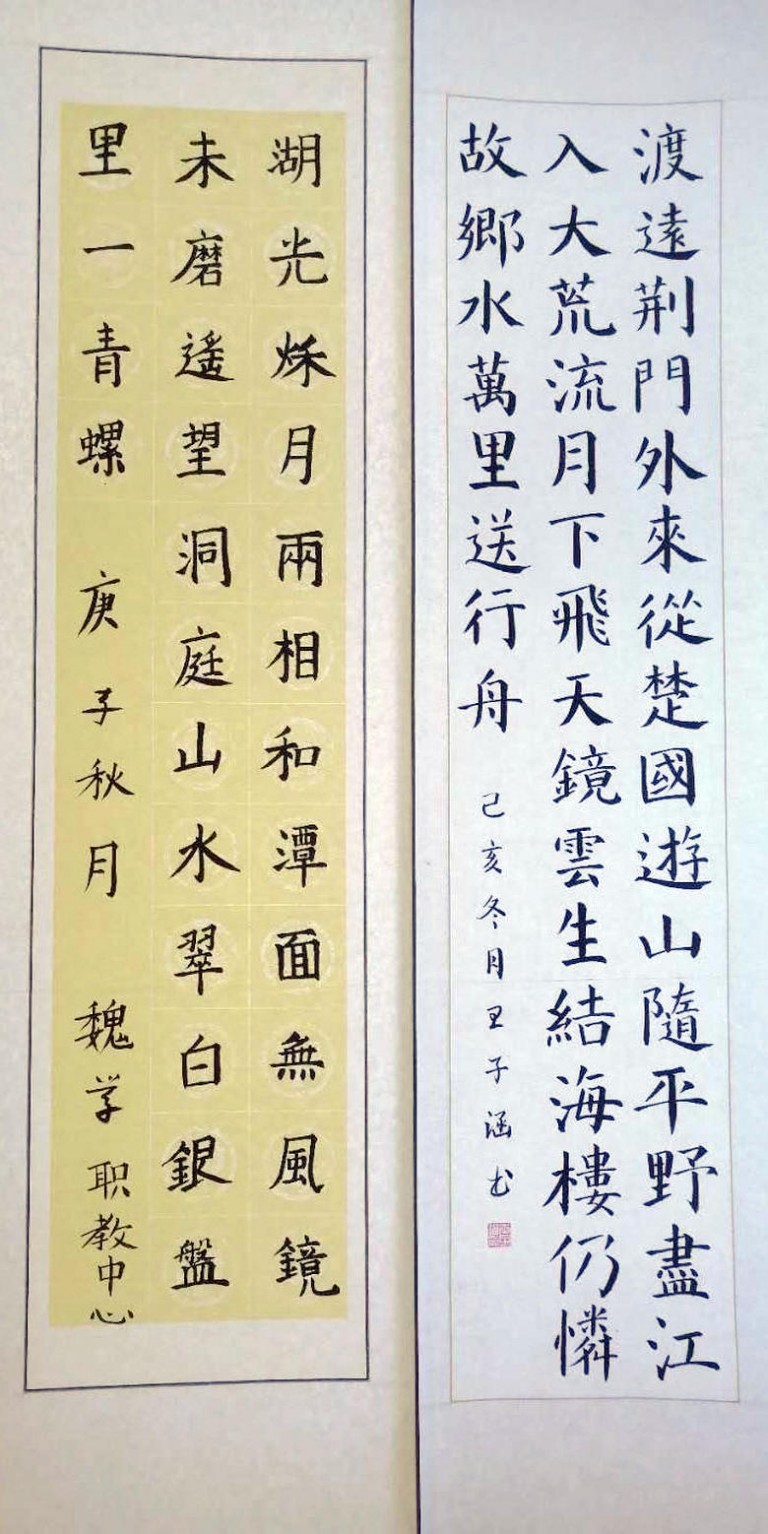 渡遠荆門外來從楚國遊山隨平野盡江
入大荒流月下飛天鏡雲生結海樓仍憐
故鄉水萬里送行舟 己亥冬月王子涵书
湖光秌月兩相和潭面無風鏡
未磨遙望洞庭山水翠白銀盤
里一青螺 庚子秋月 魏学职教中心